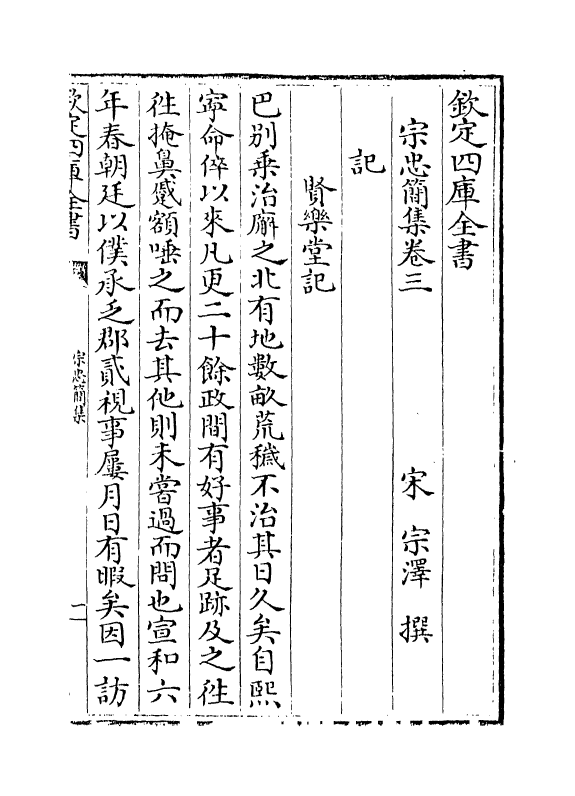 欽定四庫全書
宗忠簡集卷三
宋 宗澤 撰
記
賢樂堂記
巴别乗治廨之北有地數畝荒穢不治其日久矣自熙
寧命倅以來凡更二十餘政間有好事者足跡及之徃
徃掩鼻蹙額唾之而去其他則未嘗過而問也宣和六
年春朝廷以僕承乏郡貳視事屢月日有暇矣因一訪
欽定四庫全書
宗忠簡集
一